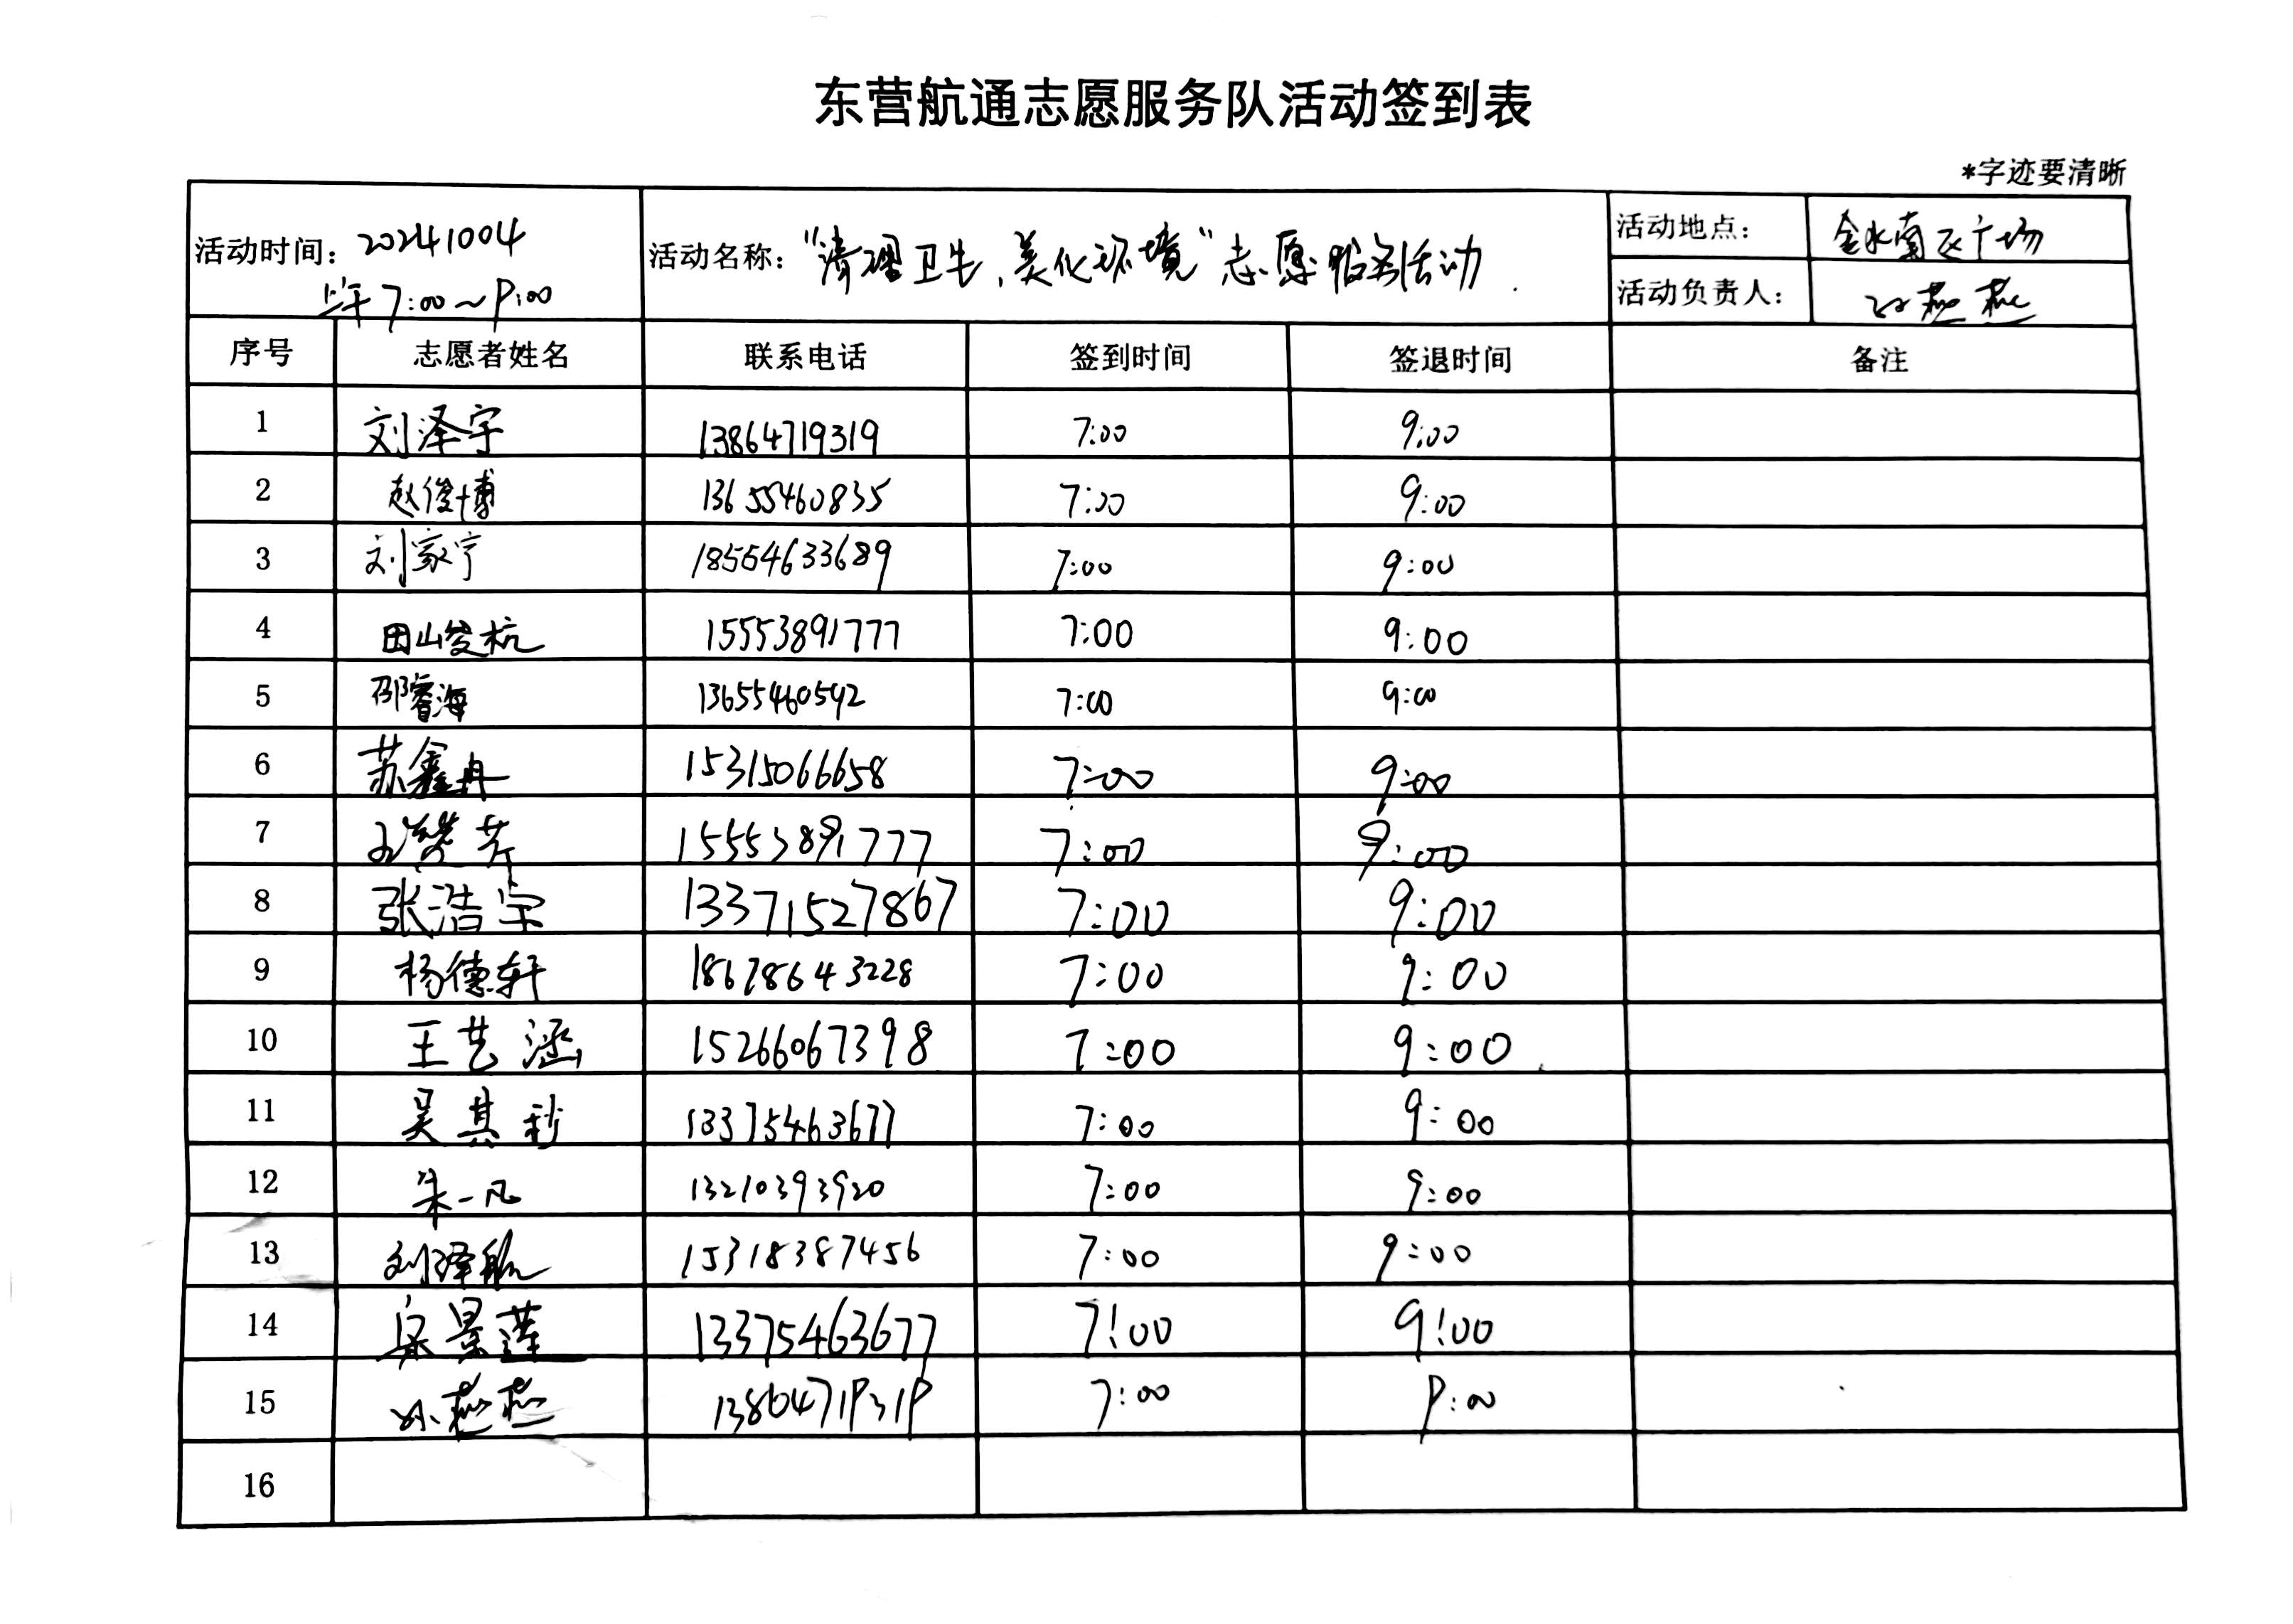 东营航通志愿服务队活动签到表
*字迹要清晰
活动时间：20241004
上午7:00～9:00
活动名称：“清理卫生，美化环境”志愿服务活动
活动地点： 金水南区广场
活动负责人： 孙燕燕
序号 志愿者姓名 联系电话 签到时间 签退时间 备注
1 刘泽宇 13864719319 7:00 9:00
2 赵俊博 13655460835 7:00 9:00
3 刘家宁 18554633689 7:00 9:00
4 田峻杭 15553891777 7:00 9:00
5 邵睿海 13655460592 7:00 9:00
6 苏鑫丹 15315066658 7:00 9:00
7 15553891777 7:00 9:00
8 张浩宇 13371527867 7:00 9:00
9 杨德轩 18678643228 7:00 9:00
10 王艺涵 15266067398 7:00 9:00
11 吴其衫 13375463677 7:00 9:00
12 朱一凡 13210393920 7:00 9:00
13 刘泽航 15318387456 7:00 9:00
14 景莲 13375463677 7:00 9:00
15 孙燕燕 13864719319 7:00 9:00
16